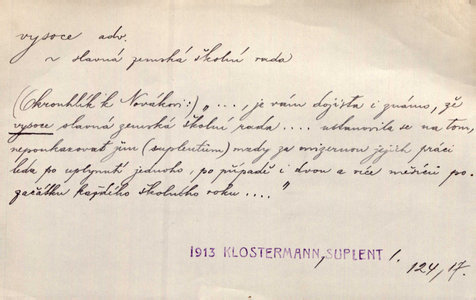 vysoce adv.
~ slavná zemská školní rada
(Okrouhlík k Novákovi:) „..., je vám dojista i známo, že
vysoce slavná zemská školní rada .... ustanovila se na tom,
nepoukazovat jim (suplentům) mzdy za mizernou jejich práci
leda po uplynutí jednoho, po případě i dvou a více měsíců po-
čátku každého školního roku ...."
1913 KLOSTERMANN, SUPLENT 1.
124, 17.